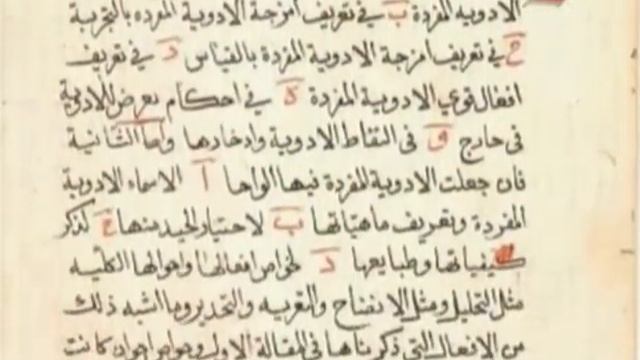 الادويه المفردة ب في تعريف امزجة الادوية المفرده بالتجربة
ح في تعريف امزجة الادوية المفردة بالقياس د في تعريف
افعال قوي الادوية المفردة ه في احكام تعرض للادوية
في خارج و في التقاط الادوية وادخارها واما الثانية
فان جعلت الادوية المفردة فيها الواحا ا الاسماء الادوية
المفردة وتعريف ماهياتها ب لاختيار الجيد منها ح لذكر
كيفياتها وطبايعها د لخواص افعالها واحوالها الكليه
مثل التحليل ومثل الانضاج والتغريه والتخدير وما اشبه ذلك
من الافعال التي ذكرناها في المقالة الاولى كانت